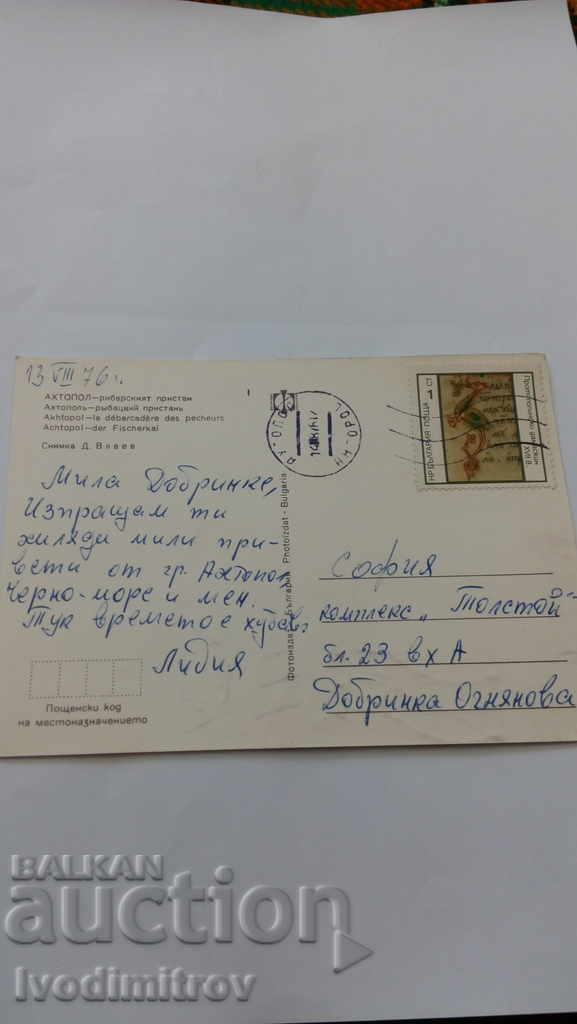 13 VIII 76 г.
АХТОПОЛ–рибарският пристан
Ахтополь–рыбацкий пристань
Akhtopol–le débarcadère des pecheurs
Achtopol–der Fischerkai
Снимка Д. Влаев
Мила Добринке,
Изпращам ти
хиляди мили при-
вети от гр. Ахтопол
Черно-море и мен.
Тук времето е хубаво
Лидия
Пощенски код
на местоназначението
България Photoizdat - Bulgaria
1 СТ
НР БЪЛГАРИЯ ПОЩА
XVI В
София
комплекс „Толстой“
бл. 23 вх А
Добринка Огнянова
BALKAN
auction
Ivodimitrov